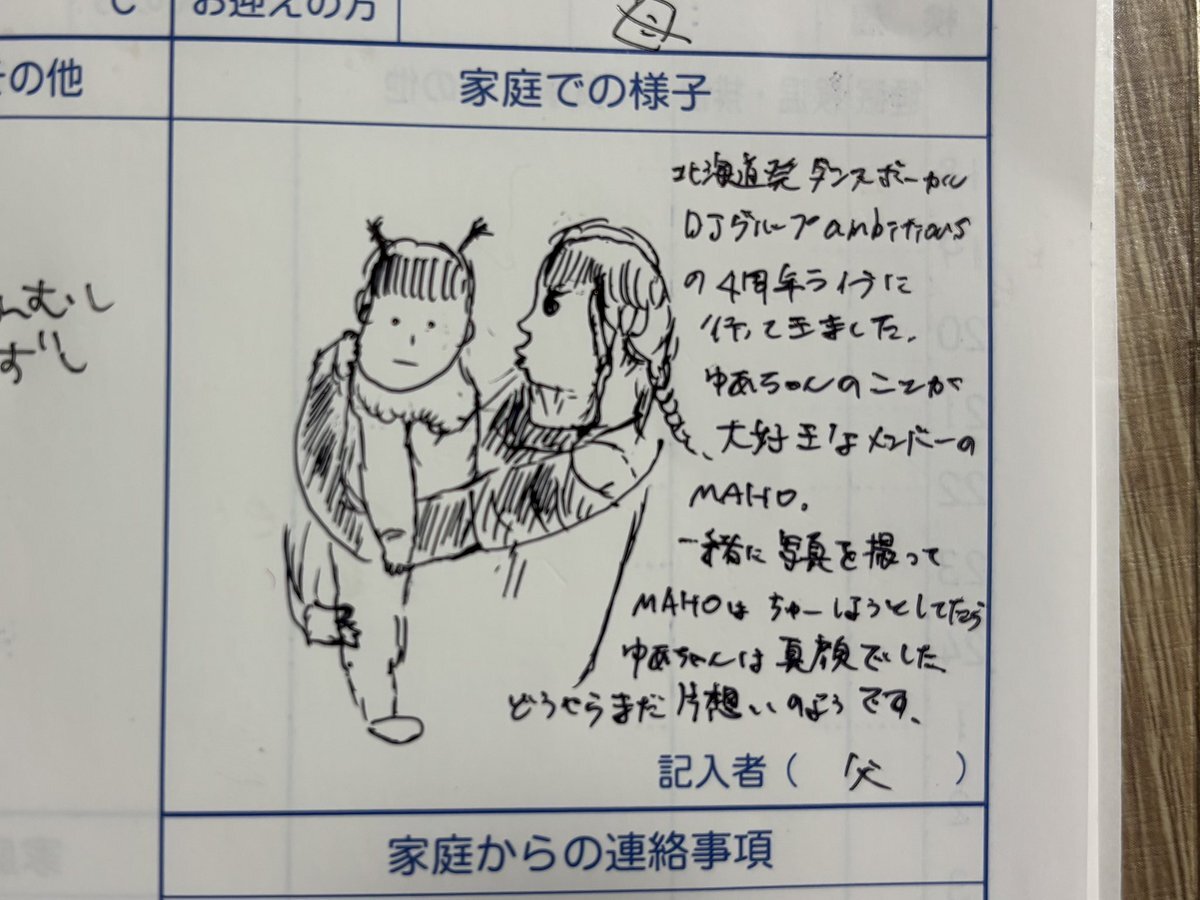 ℃
お迎えの方
その他
家庭での様子
北海道発ダンスボーカル
DJグループambitious
の4周年ライブに
行って来ました。
ゆあちゃんのことが
大好きなメンバーの
MAHO。
一緒に写真を撮って
MAHOはちゅーしようとしてたら
ゆあちゃんは真顔でした
どうやらまだ片想いのようです、
記入者(父)
家庭からの連絡事項